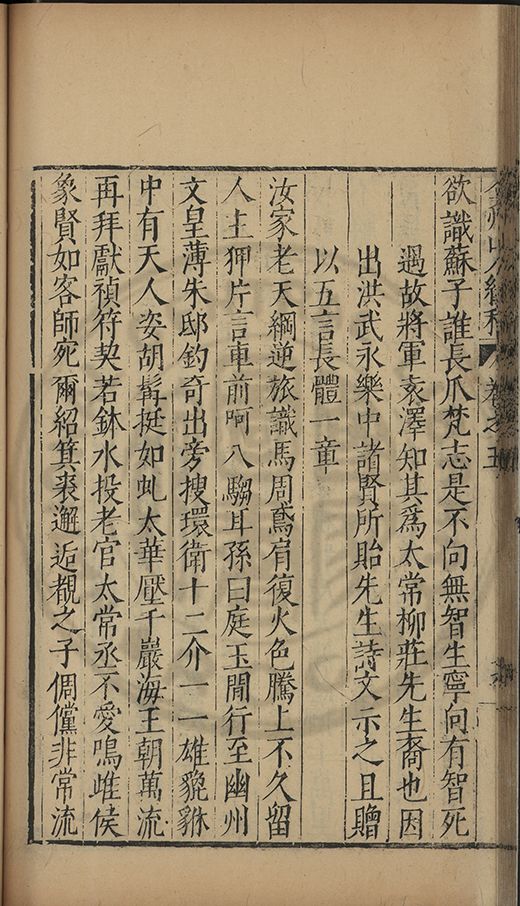 弇州山人續稿 卷之五
欲識蘇子誰長爪梵志是不向無智生寧向有智死
過故將軍袁澤知其爲太常柳莊先生裔也因
出洪武永樂中諸賢所貽先生詩文示之且贈
以五言長體一章
汝家老天綱逆旅識馬周鳶肩復火色騰上不久留
人主狎片言車前呵八騶耳孫曰庭玉閒行至幽州
文皇薄朱邸釣奇出旁搜環衛十二介一一雄貔貅
中有天人姿胡髯挺如虬太華壓千巖海王朝萬流
再拜獻禎符契若鉢水投老官太常丞不愛鳴雌侯
象賢如客師宛爾紹箕裘邂逅覯之子倜儻非常流